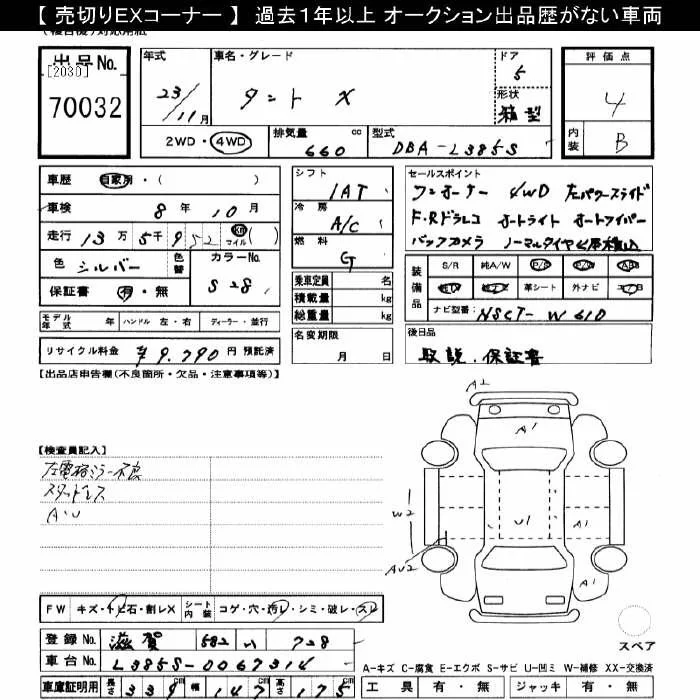 【 売切りEXコーナー 】 過去1年以上 オークション出品歴がない車両
(複合機)対応用紙
出品No.
[2030]
70032
年式
23/11月
車名・グレード
タント X
ドア
5
形状
箱型
評価点
4
内装
B
2WD・4WD
排気量 cc
660
型式
DBA-L385S
車歴 自家用・( )
車検 8年 10月
走行 13万 5千 952 km マイル ( )
色 シルバー 色替
カラーNo.
S28
保証書 有・無
シフト
1AT
冷房
A/C
燃料
G
セールスポイント
ワンオーナー 4WD 左パワースライド
F.Rドラレコ オートライト オートワイパー
バックカメラ ノーマルタイヤ4本積込
装備品
S/R 純A/W P/S P/W ABS
革シート 外ナビ エアB
ナビ型番: NSCT-W61D
モデル年式 年 ハンドル 左・右 ディーラー・並行
乗車定員 名
積載量 kg
総重量 kg
名変期限
月 日
後日品
取説、保証書
リサイクル料金 ¥9,790 円 預託済
【出品店申告欄(不良箇所・欠品・注意事項等)】
【検査員記入】
左電格ミラー不良
スタッドレス
A・U
A2
A1
W2
U1
A1
AU2
A1
スペア
FW キズ・トビ石・割レX シート内装 コゲ・穴・汚レ・シミ・破レ・スレ
登録No. 滋賀 582 い 728
車台No. L385S-0067314
車庫証明用 長さ 339 cm 幅 147 cm 高さ 175 cm
A-キズ C-腐食 E-エクボ S-サビ U-凹ミ W-補修 XX-交換済
工具 有・無 ジャッキ 有・無